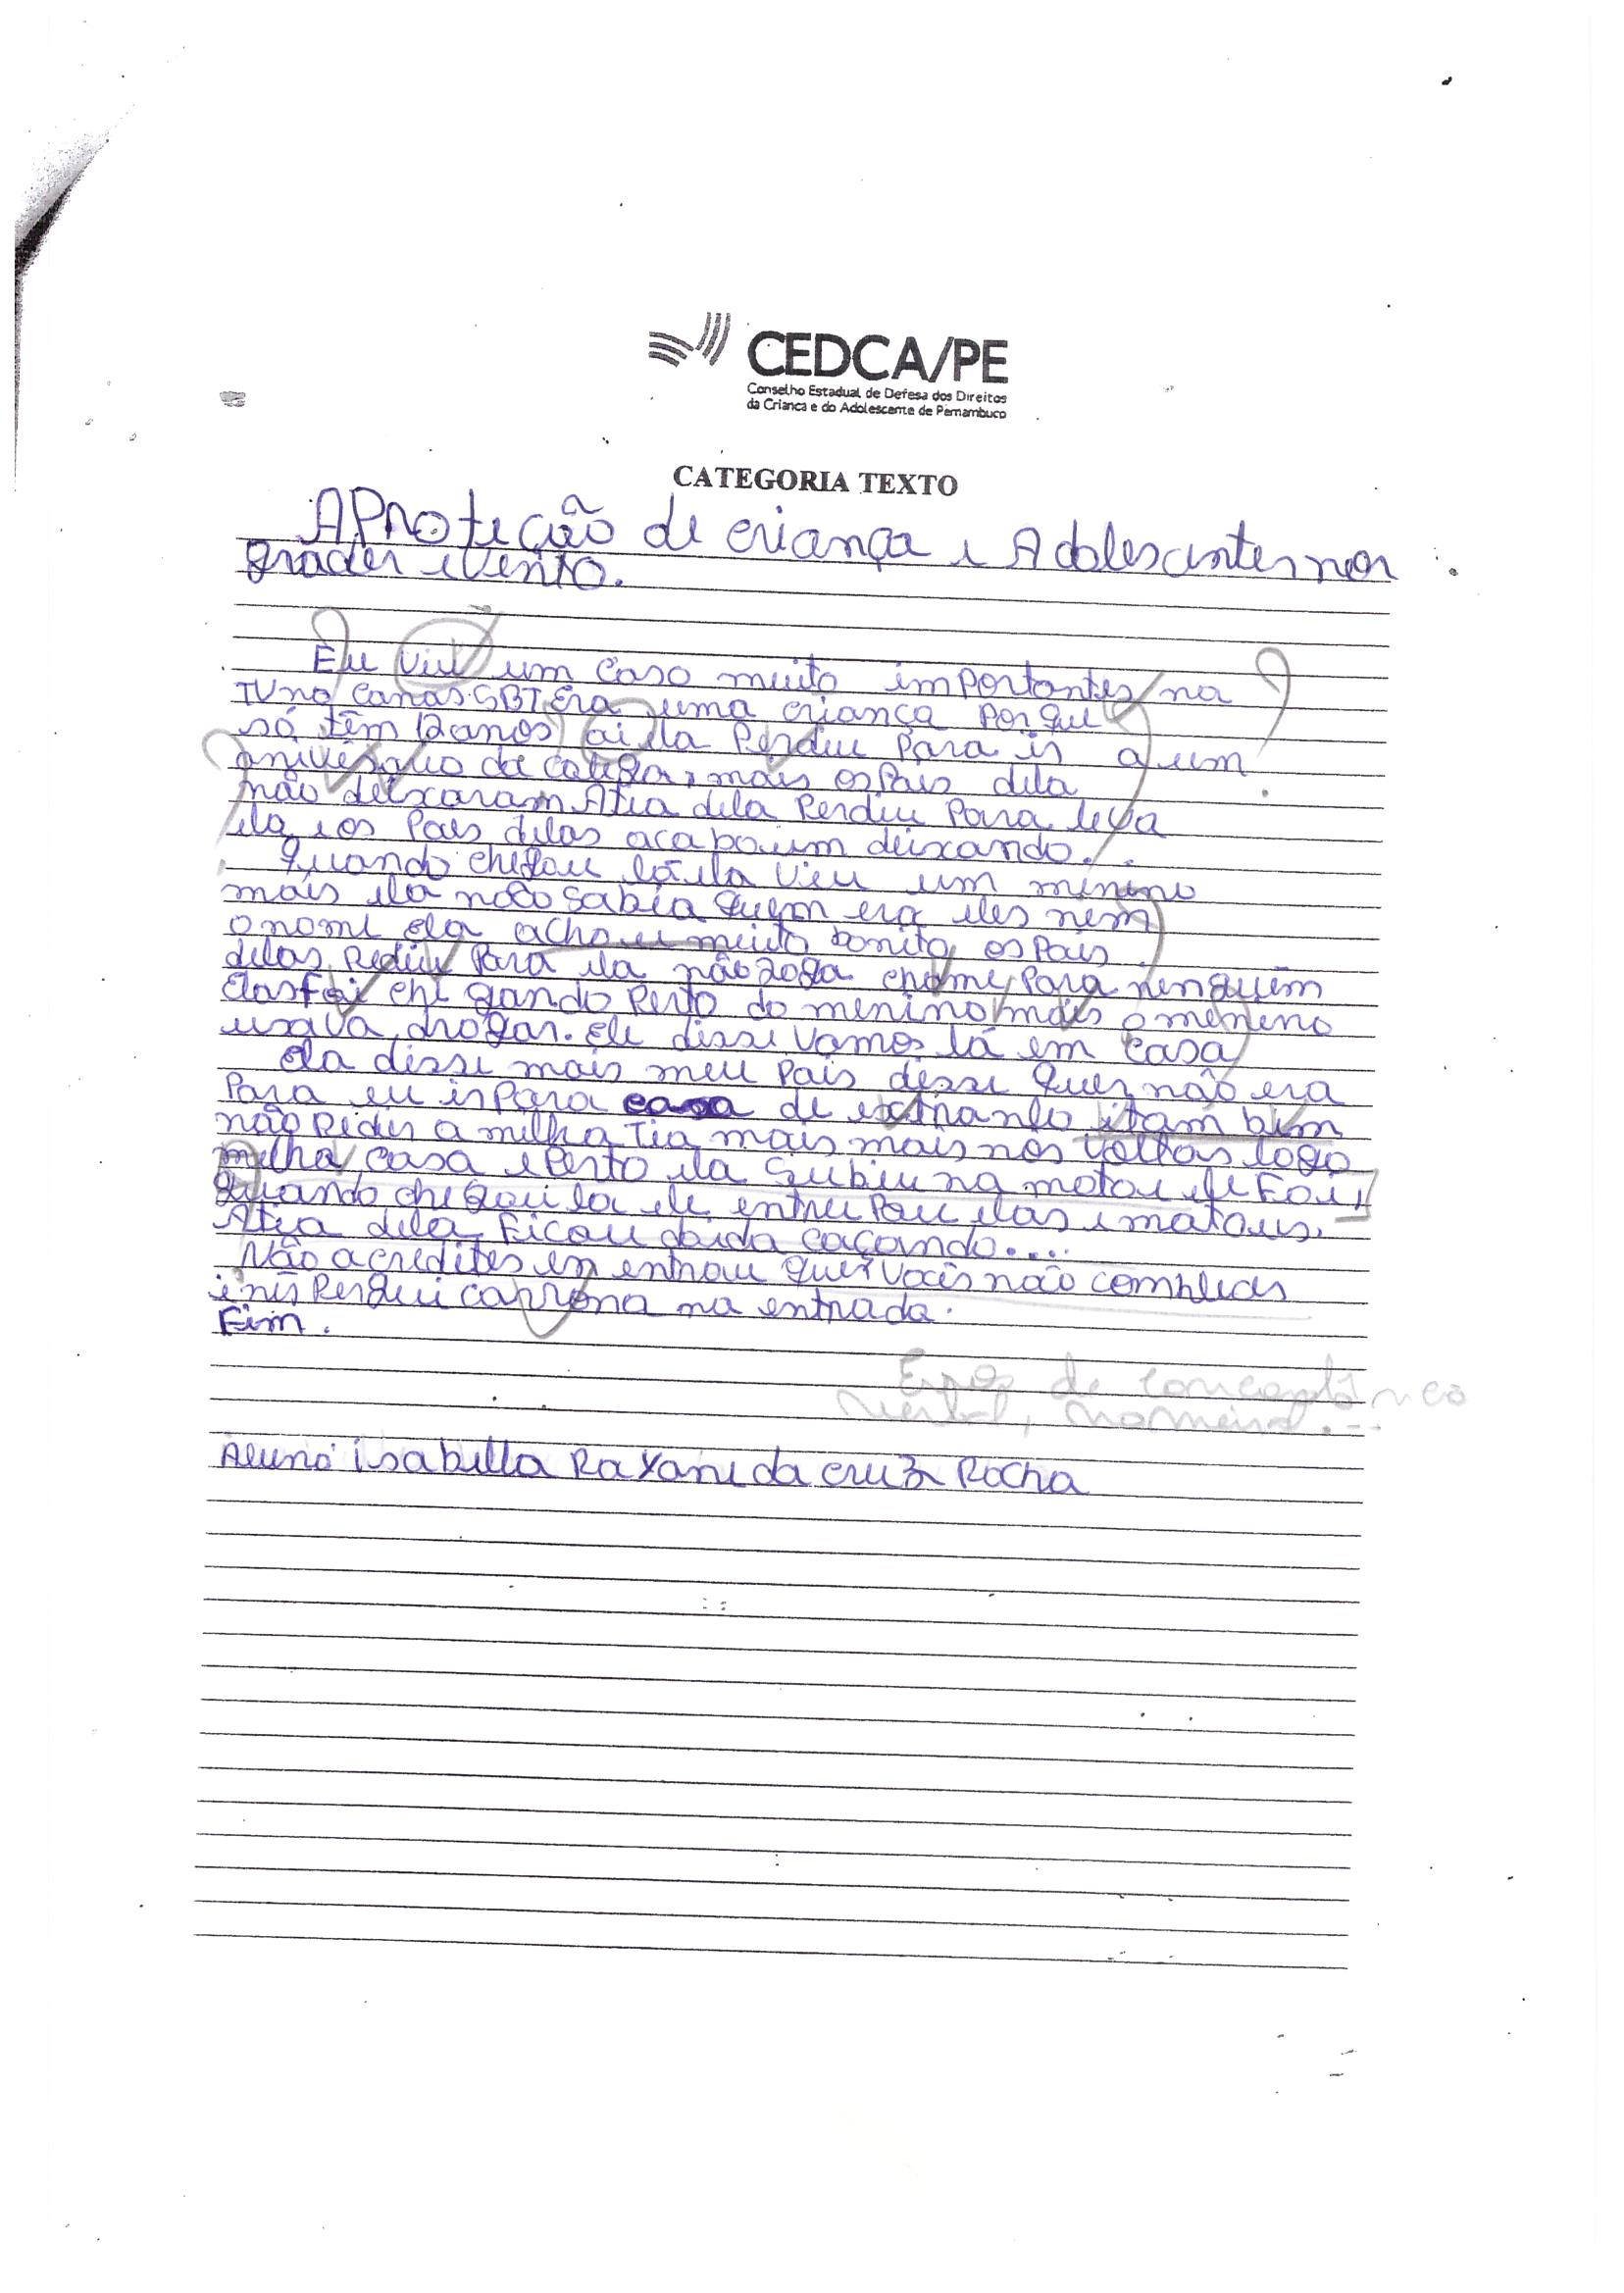 CEDCA/PE
Conselho Estadual de Defesa dos Direitos
da Criança e do Adolescente de Pernambuco
CATEGORIA TEXTO
A Proteção de criança e Adolescentes nos
grader evento.
Eu viu um caso muito importantes na
TV no canas SBT Era uma criança Porque
só têm 12 anos ai ela Perdiu Para is a um
anivésario da coliga, mais os Pais dela
não deixaram A tia dela Perdiu Para leva
ela e os Pais delas acaboum deixando.
Quando chegou lá ela viu um menino
mais ela não sabia quem era eles nem
o nome ela achou muito bonito os Pais
delas Pediu Para ela não zoga chame Para ninguém
Elas Foi chegando Perto do menino mais o menino
usava drogas. Ele disse vamos lá em casa
Ela disse mais meu Pais disse quer não era
Para eu is Para casa de extranho itam bem
não Pedir a milha Tia mais mais nos voltas logo
milha casa e Perto ela subiu na motor ele Foi,
quando chegou la ele entru Pou elas e matous.
A tia dela Ficou doida caçando....
Não acredites em entrou quer vocês não comhecs
e nẽs Pergui carrona na entrada.
Fim.
Erros de concordância
verbal, nomeinal...
Aluno isabella Rayane da cruz Rocha